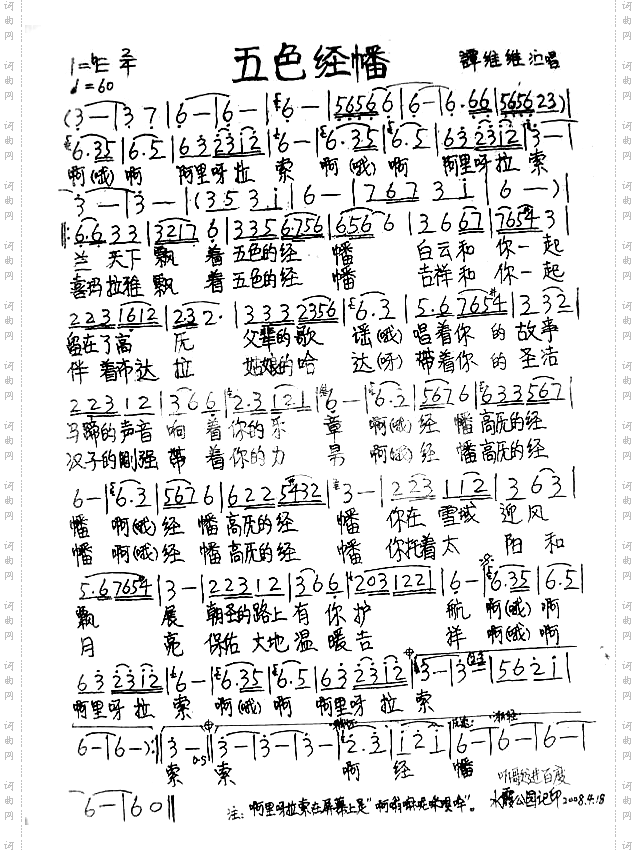 五色经幡
1=♭E 2/4
谭维维 演唱
♩=60
(3-|37|6-|6-|6-|56566|6-|6·66|565623)|
6·35|6·5|632312|6-|6·35|6·5|632312|3-|
啊(哦)啊 阿里呀拉 索 啊(哦)啊 阿里呀拉 索
3-|3-|(353i|6-|7673i|6-)|
6·633|32176|3356756|6566|3667|76543|
兰天下飘 着五色的经 幡 白云和 你一起
喜玛拉雅飘 着五色的经 幡 吉祥和 你一起
2231612|232·|3332356|6·3|5·67654|332|
留在了高 原 父辈的歌 谣(哦)唱着你 的故事
伴着布达 拉 姑娘的哈 达(呀)带着你 的圣洁
22312|366|2·3121|6-|6·3|5676|633567|
马蹄的声音 响 着你的乐 章 啊(哦)经 幡高原的经
汉子的刚强 带 着你的力 量 啊(哦)经 幡高原的经
6-|6·3|5676|6225432|3-|223112|363|
幡 啊(哦)经 幡高原的经 幡 你在 雪域 迎风
幡 啊(哦)经 幡高原的经 幡 你托着太 阳和
5·67654|3-|22312|366|203122|6-|6·35|6·5|
飘 展 朝圣的路上有你护 航 啊(哦)啊
月 亮 保佑大地温暖吉 祥 啊(哦)啊
632312|6-|6·35|6·5|632312|3-|3-|562i|
啊里呀拉 索 啊(哦)啊 啊里呀拉 索
6-|6-:|3-|3-|3-|3-|2·3|i2i|6-|6-|6-|
索 索 啊 经 幡
D.S
听歌总进百度
6-|60||
注：啊里呀拉索在屏幕上是"啊嗡嘛呢咪呗吽"。
水霞公园记印 2008.4.18
词曲网